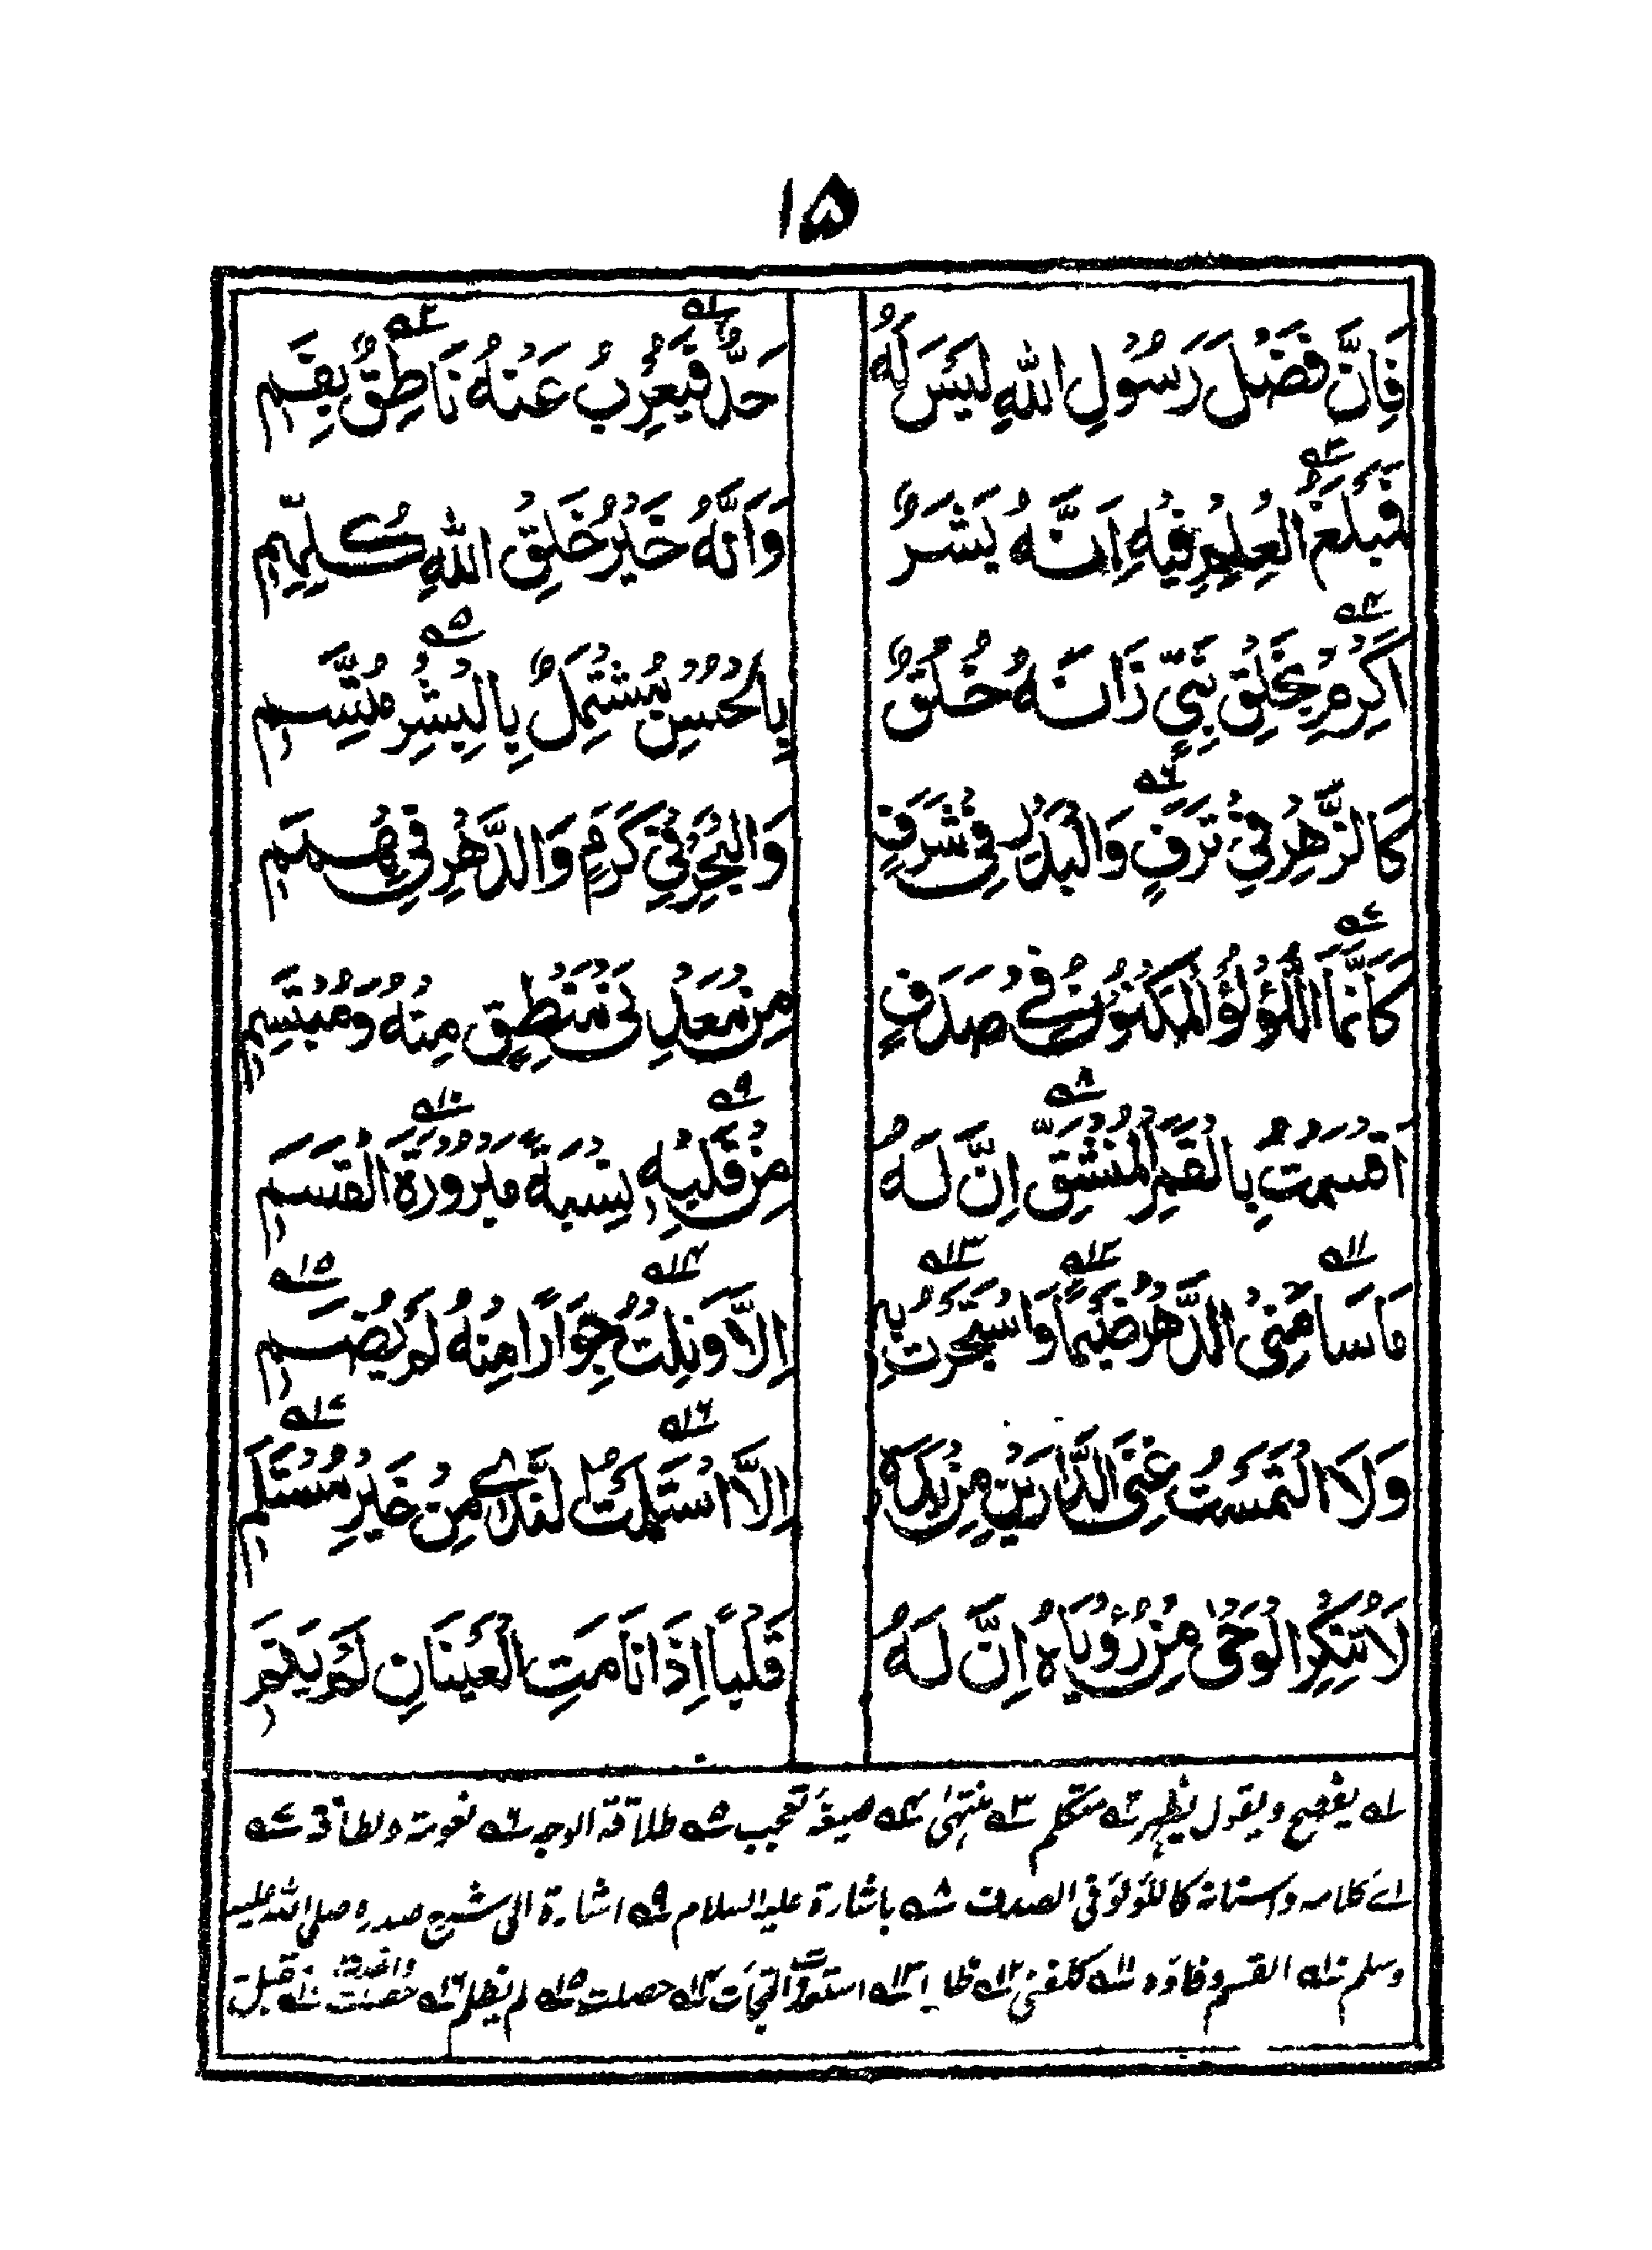 ۱۵
فَاِنَّ فَضْلَ رَسُوْلِ اللّٰهِ لَيْسَ لَهٗ حَدٌّ فَيُعْرِبُ عَنْهُ نَاطِقٌ بِفَمِ
فَمَبْلَغُ الْعِلْمِ فِيْهِ اَنَّهٗ بَشَرٌ وَاَنَّهٗ خَيْرُ خَلْقِ اللّٰهِ كُلِّهِمِ
اَكْرِمْ بِخَلْقِ نَبِيٍّ زَانَهٗ خُلُقٌ بِالْحُسْنِ مُشْتَمِلٌ بِالْبِشْرِ مُتَّسِمِ
كَالزَّهْرِ فِيْ تَرَفٍ وَالْبَدْرِ فِيْ شَرَفٍ وَالْبَحْرِ فِيْ كَرَمٍ وَالدَّهْرِ فِيْ هِمَمِ
كَاَنَّمَا اللُّؤْلُؤُ الْمَكْنُوْنُ فِيْ صَدَفٍ مِنْ مَعْدِنَيْ مَنْطِقٍ مِنْهُ وَمُبْتَسَمِ
اَقْسَمْتُ بِالْقَمَرِ الْمُنْشَقِّ اِنَّ لَهٗ مِنْ قَلْبِهٖ نِسْبَةً مَبْرُوْرَةَ الْقَسَمِ
مَا سَامَنِيْ الدَّهْرُ ضَيْمًا وَاسْتَجَرْتُ بِهٖ اِلَّا وَنِلْتُ جِوَارًا مِنْهُ لَمْ يُضَمِ
وَلَا الْتَمَسْتُ غِنَى الدَّارَيْنِ مِنْ يَدِهٖ اِلَّا اسْتَلَمْتُ النَّدٰى مِنْ خَيْرِ مُسْتَلَمِ
لَا تُنْكِرِ الْوَحْيَ مِنْ رُؤْيَاهُ اِنَّ لَهٗ قَلْبًا اِذَا نَامَتِ الْعَيْنَانِ لَمْ يَنَمِ
۱ يفصح ويقول يظهر ۲ متكلم ۳ منتهىٰ ۴ صيغة تعجب ۵ طلاقة الوجه ۶ نعومة ولطافة ۷
اے كلامه واسنانه كاللؤلؤ فى الصدف ۸ باشارة عليه السلام ۹ اشارة الى شق صدره صلى الله عليه
وسلم ۱۰ القسم ۱۱ كلفنى ۱۲ ۱۳ ۱۴ حصلت ۱۵ لم يظلم ۱۶ ۱۷